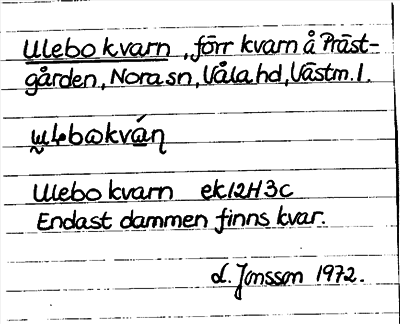 Ulebo kvarn, förr kvarn å Präst-
gården, Nora sn, Våla hd, Västm. l.
Ulebo kvarn ek 12H 3c
Endast dammen finns kvar.
L. Jonsson 1972.